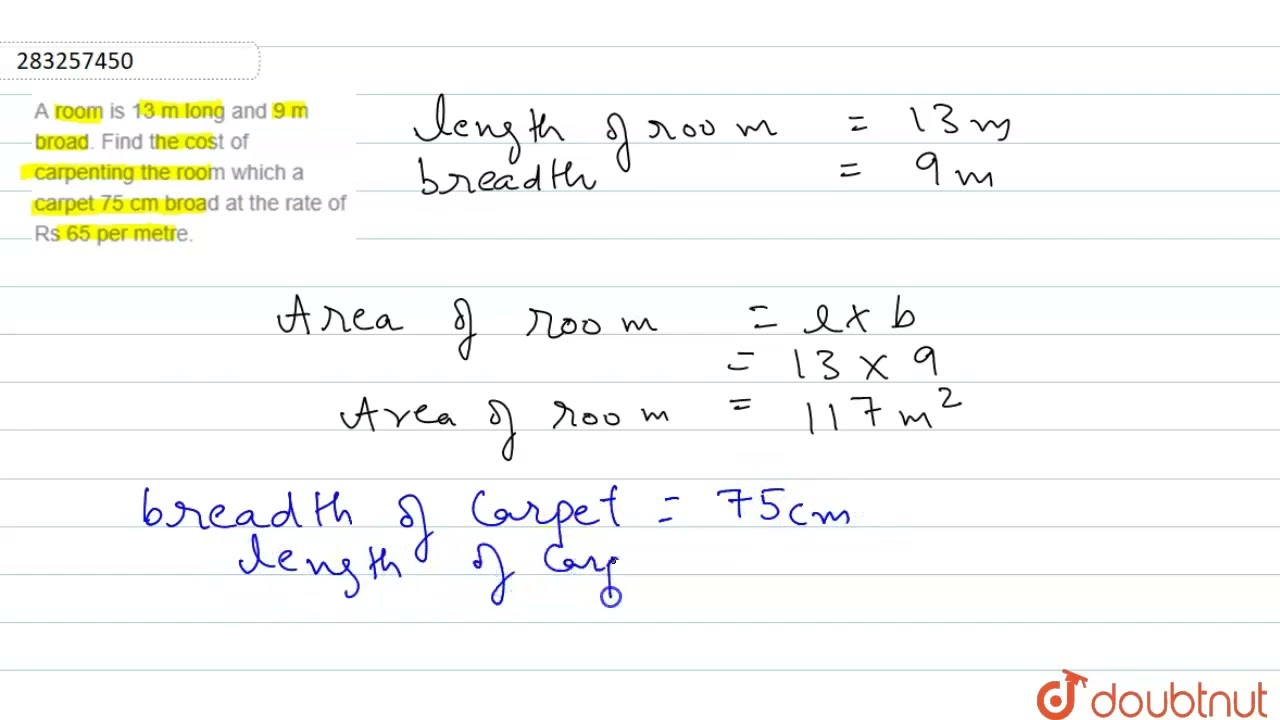 283257450
A room is 13 m long and 9 m
broad. Find the cost of
carpenting the room which a
carpet 75 cm broad at the rate of
Rs 65 per metre.
length of room = 13m
breadth = 9m
Area of room = l x b
= 13 x 9
Area of room = 117 m²
breadth of Carpet = 75cm
length of Carp
doubtnut